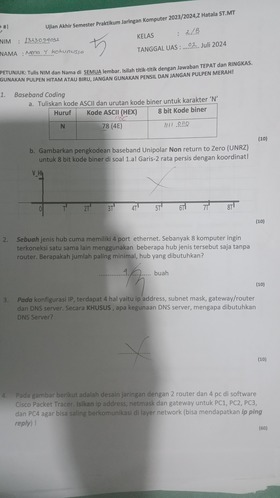 Ujian Akhir Semester Praktikum Jaringan Komputer 2023/2024,Z Hatala ST.MT
NIM :
KELAS : 2/B
NAMA :
TANGGAL UAS : 02 Juli 2024
5
PETUNJUK: Tulis NIM dan Nama di SEMUA lembar. Isilah titik-titik dengan Jawaban TEPAT dan RINGKAS.
GUNAKAN PULPEN HITAM ATAU BIRU, JANGAN GUNAKAN PENSIL DAN JANGAN PULPEN MERAH!
1. Baseband Coding
a. Tuliskan kode ASCII dan urutan kode biner untuk karakter 'N'
Huruf Kode ASCII (HEX) 8 bit Kode biner
N 78 (4E)
(10)
b. Gambarkan pengkodean baseband Unipolar Non return to Zero (UNRZ)
untuk 8 bit kode biner di soal 1.a! Garis-2 rata persis dengan koordinat!
0 T 2T 3T 4T 5T 6T 7T 8T
(10)
2. Sebuah jenis hub cuma memiliki 4 port ethernet. Sebanyak 8 komputer ingin
terkoneksi satu sama lain menggunakan beberapa hub jenis tersebut saja tanpa
router. Berapakah jumlah paling minimal, hub yang dibutuhkan?
buah
(10)
3. Pada konfigurasi IP, terdapat 4 hal yaitu ip address, subnet mask, gateway/router
dan DNS server. Secara KHUSUS : apa kegunaan DNS server, mengapa dibutuhkan
DNS Server?
(10)
4. Pada gambar berikut adalah desain jaringan dengan 2 router dan 4 pc di software
Cisco Packet Tracer. Isilah ip address, netmask dan gateway untuk PC1, PC2, PC3,
dan PC4 agar bisa saling berkomunikasi di layer network (bisa mendapatkan ip ping
reply) !
(60)